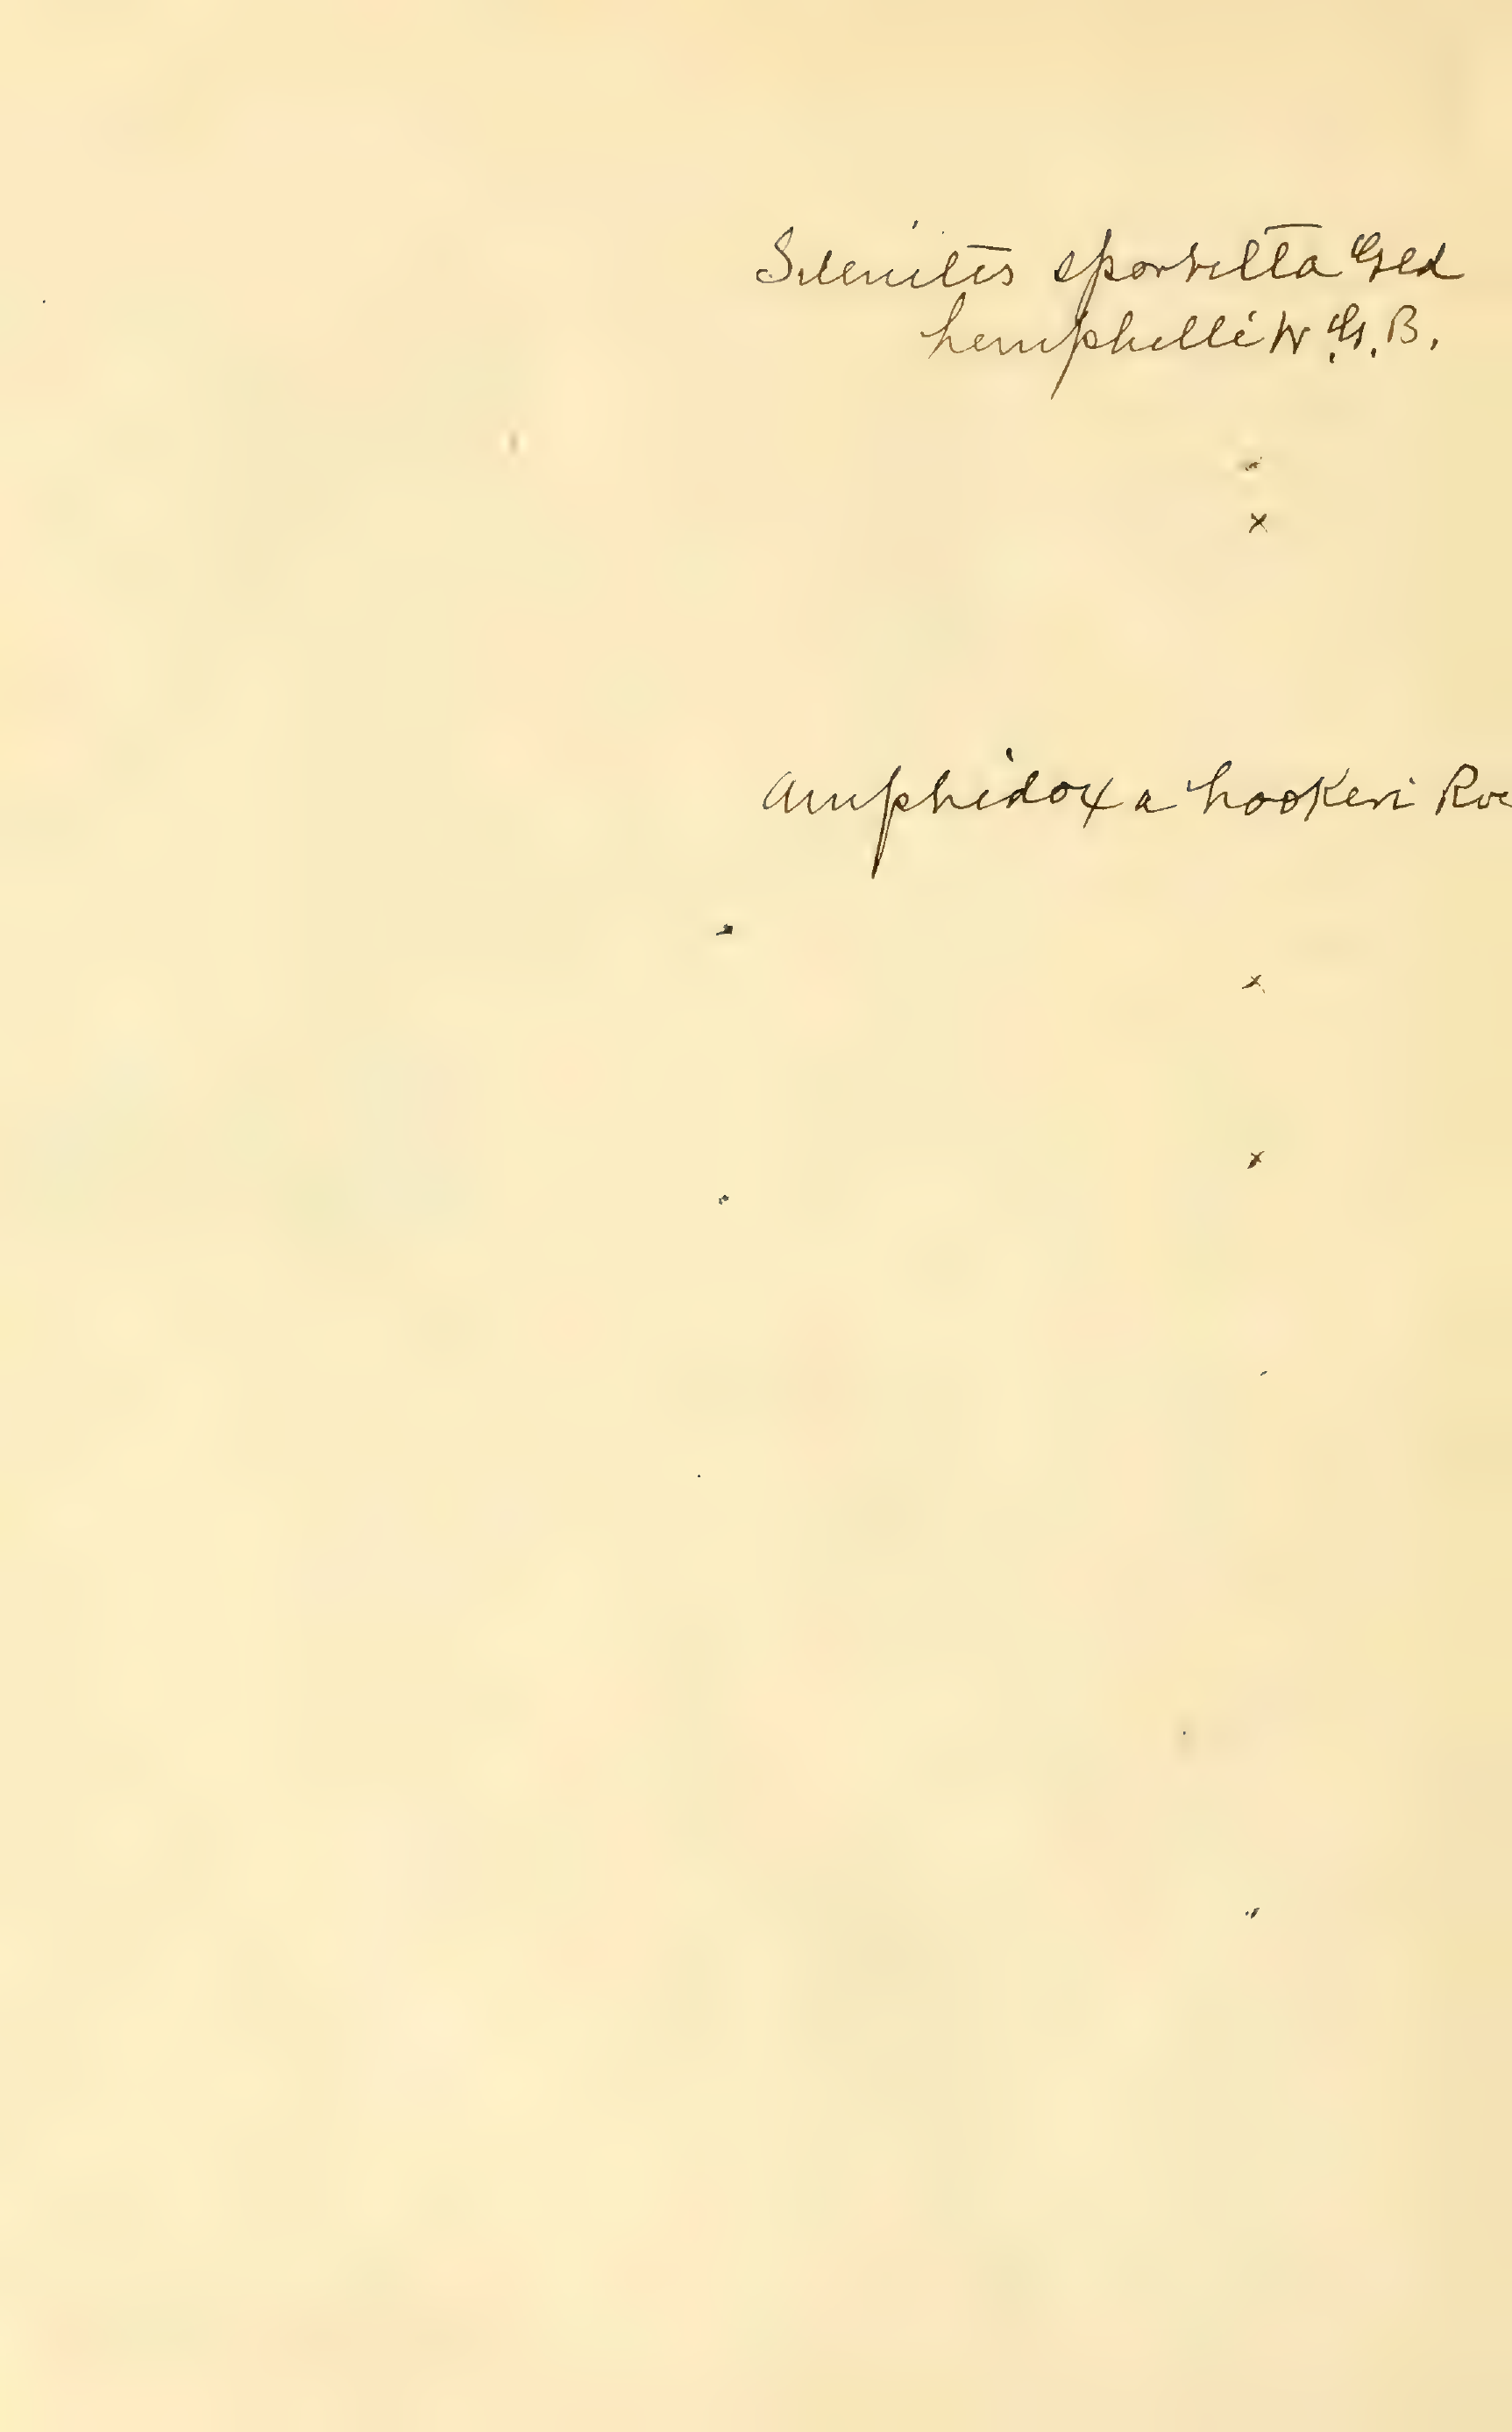 Selenites sportella Gld
hemphilli W. G. B.
×
Amphidoxa hookeri
×
×